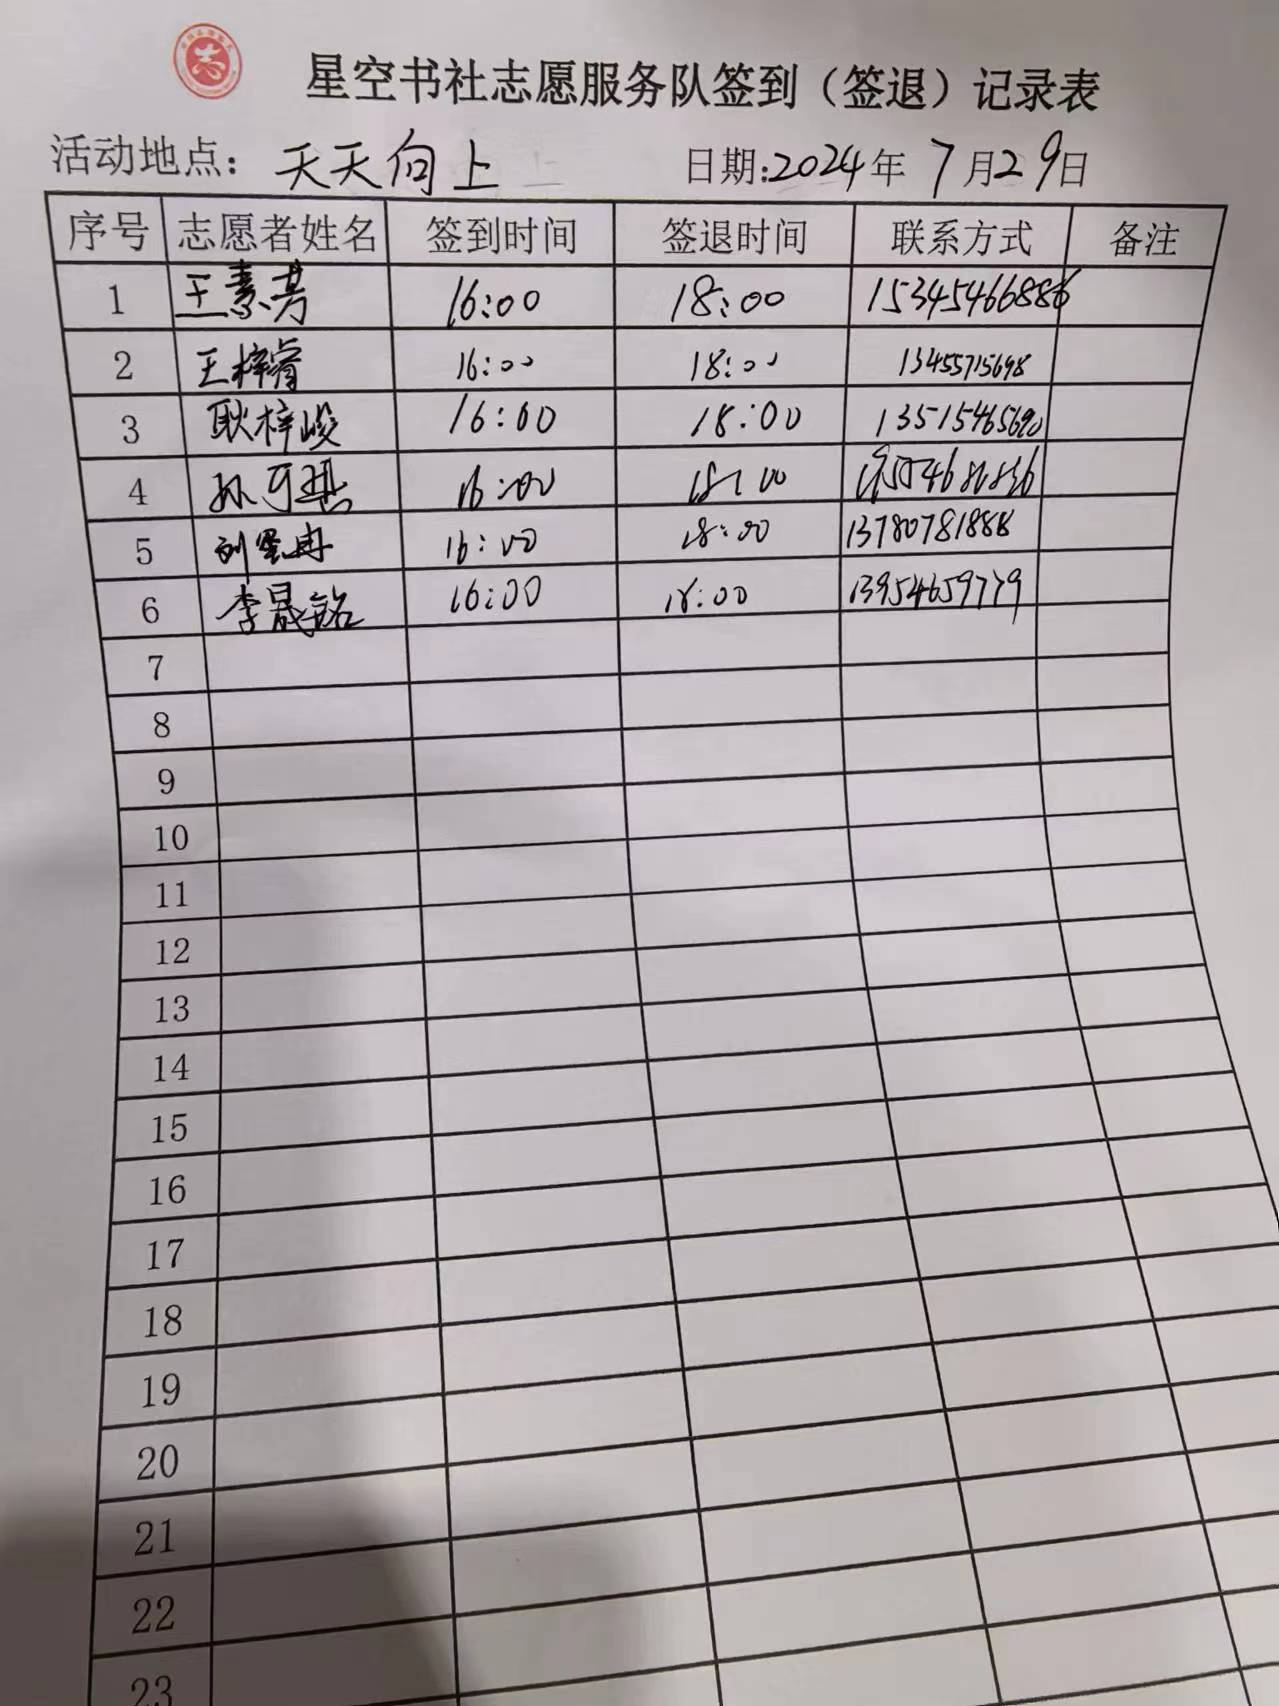 志
星空书社志愿服务队签到（签退）记录表
活动地点：天天向上 日期:2024年7月29日
序号 志愿者姓名 签到时间 签退时间 联系方式 备注
1 王素芳 16:00 18:00 15345466886
2 王梓睿 16:00 18:00 13455715698
3 耿梓峻 16:00 18:00 13515465690
4 孙可琪 16:00 18:00
5 刘 冉 16:00 18:00 13780781888
6 李晟铭 16:00 18:00 13954659779
7
8
9
10
11
12
13
14
15
16
17
18
19
20
21
22
23